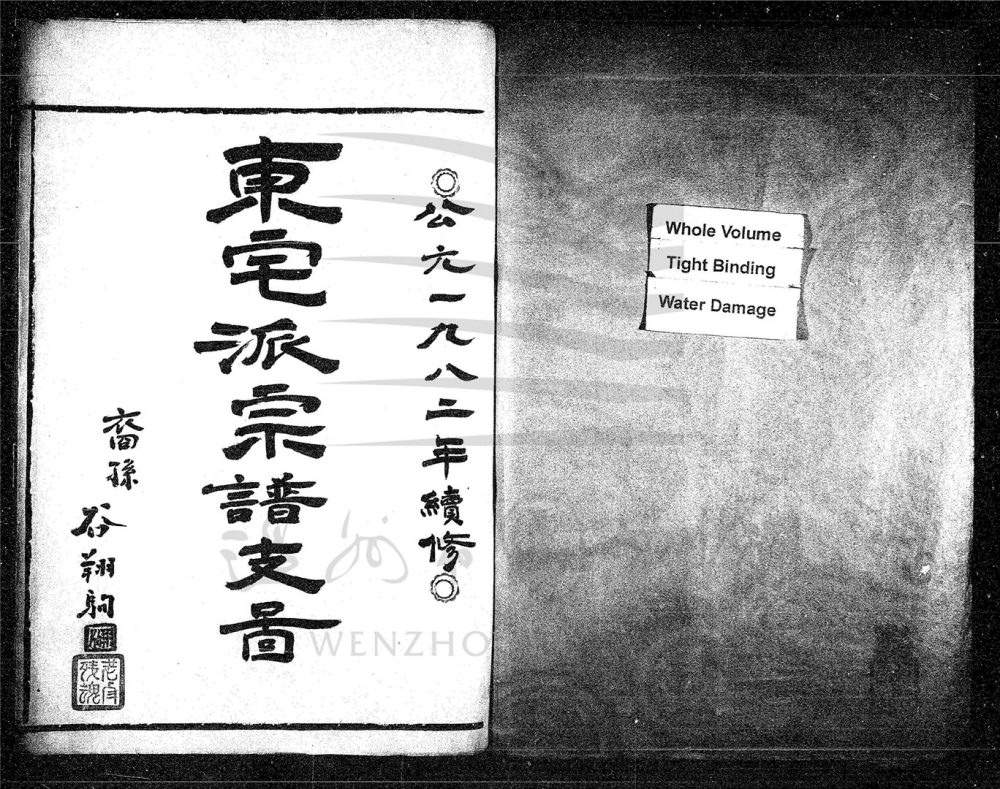 公元一九八二年續修
東宅派宗譜支啚
裔孫
谷翔駒
Whole Volume
Tight Binding
Water Damage
WENZHO